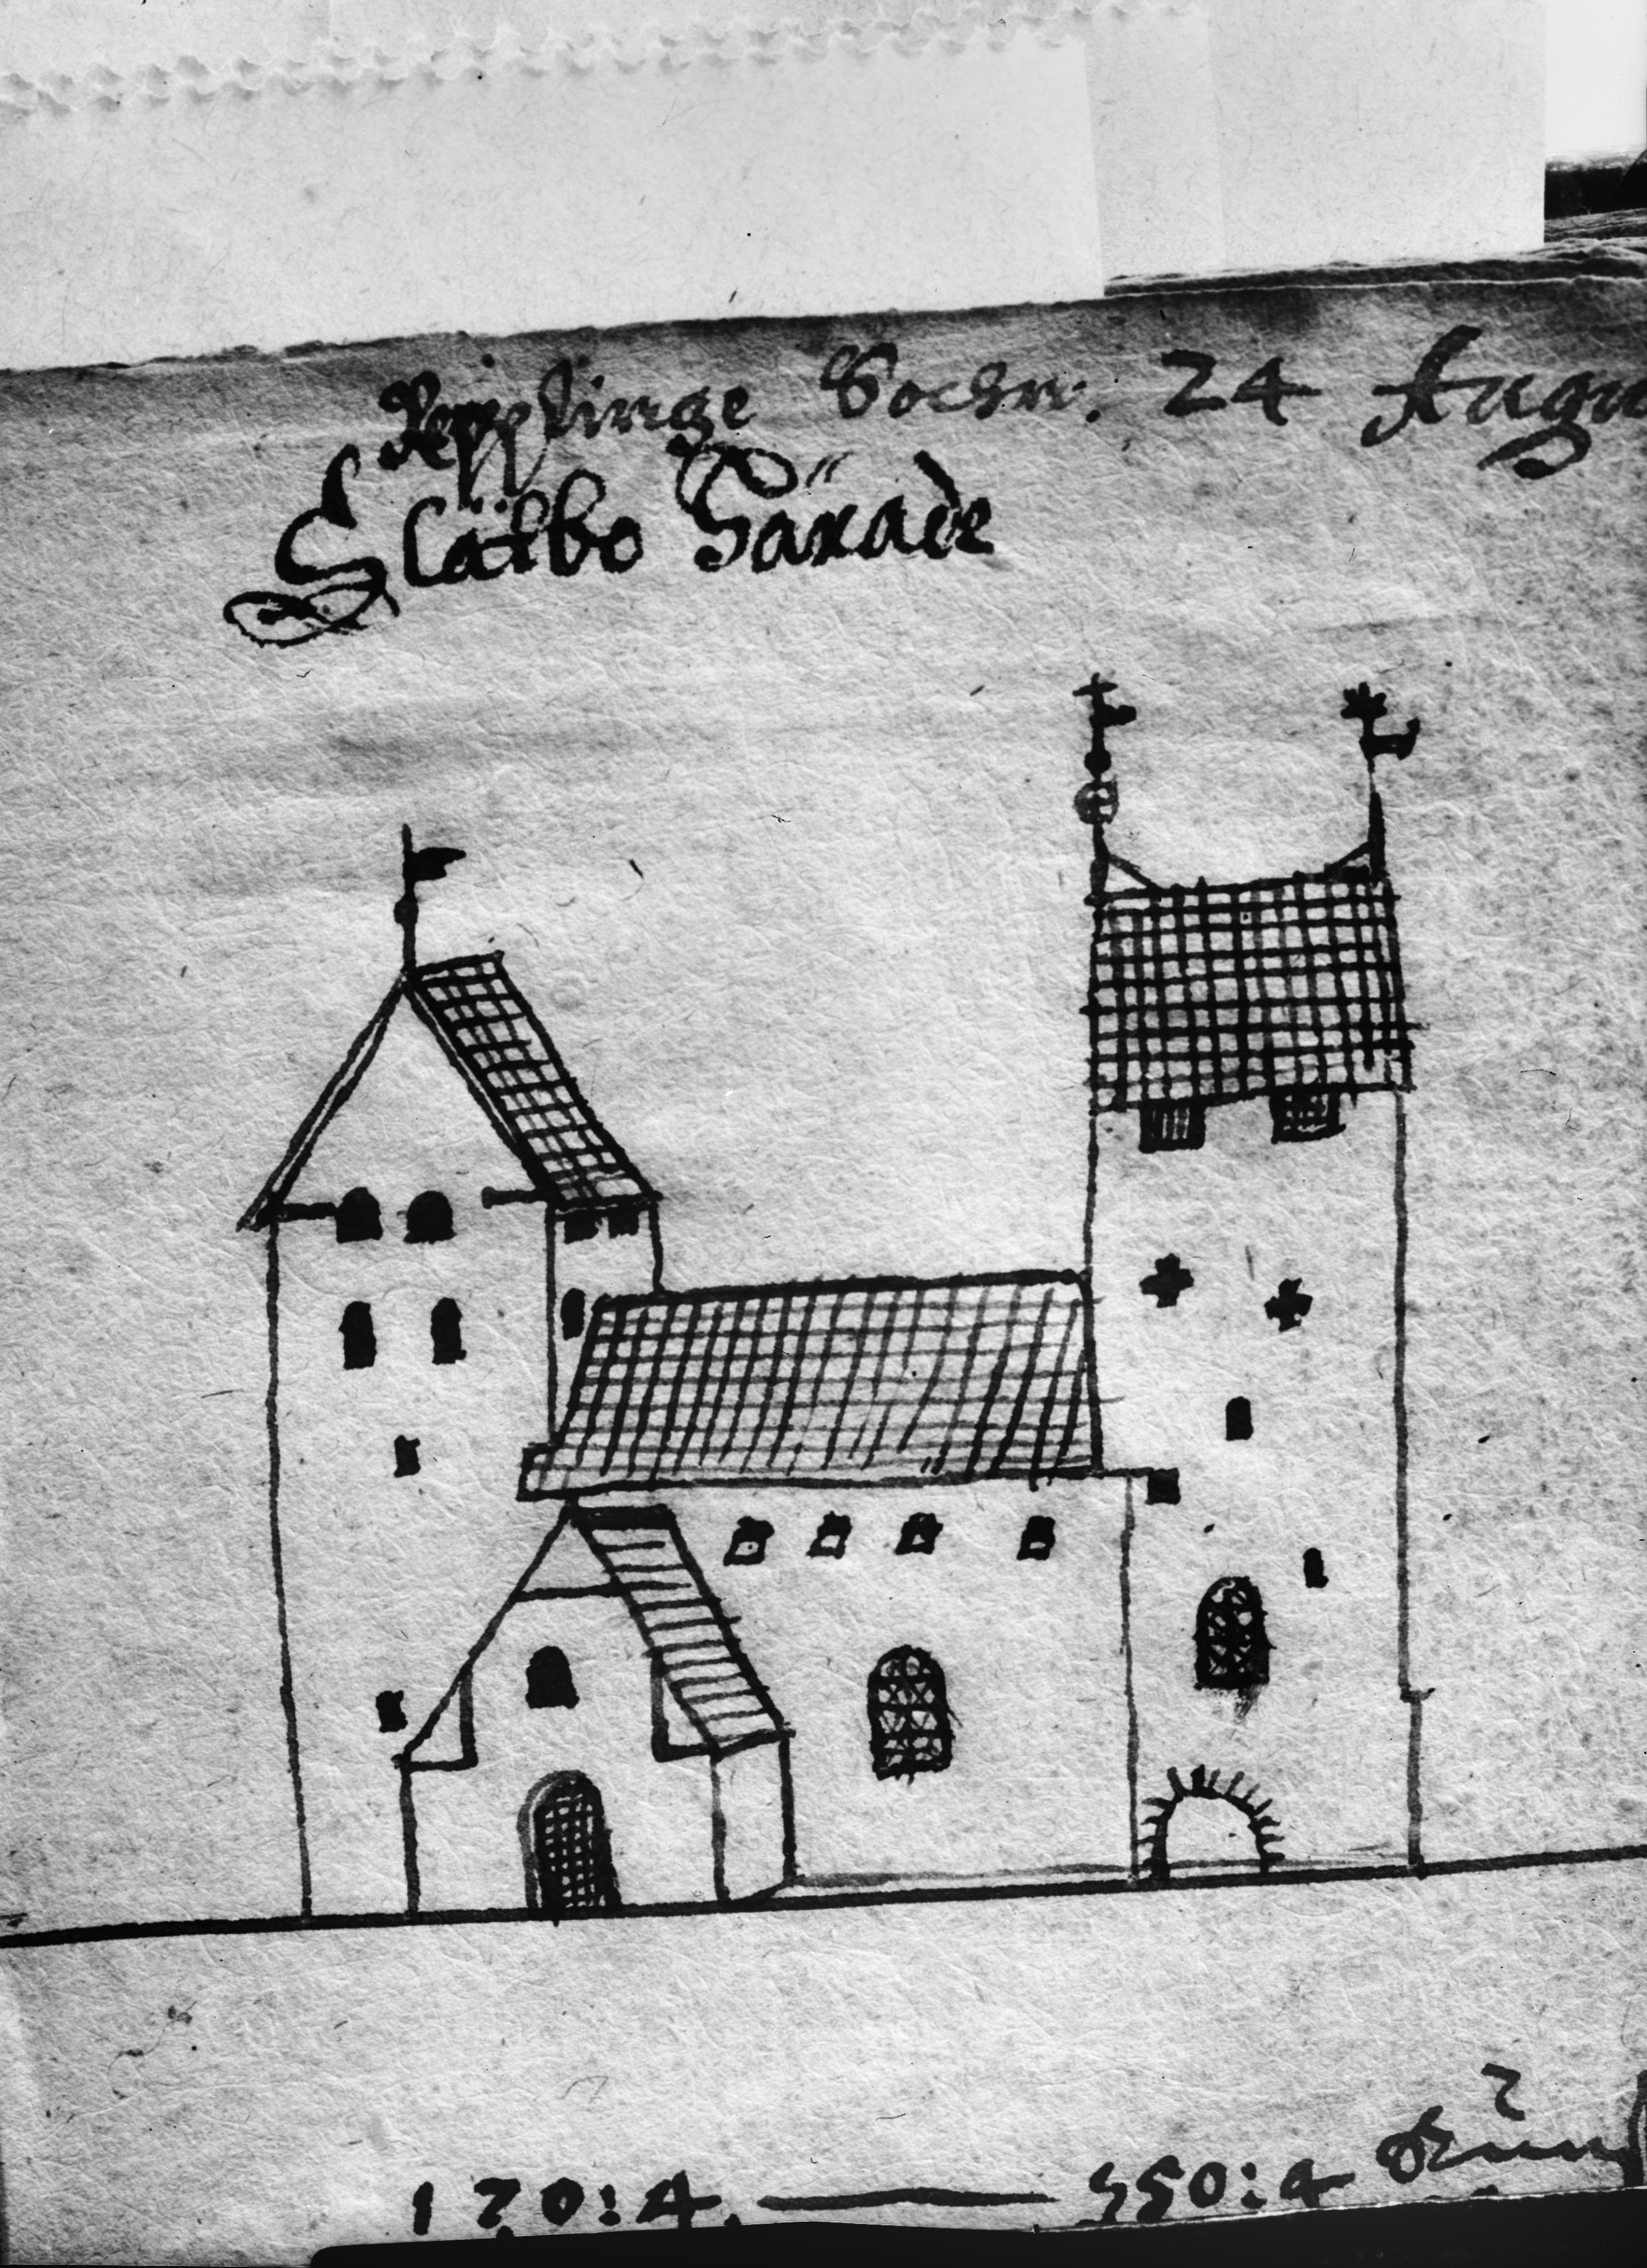 Kepplinge Sochn. 24 Augu
Slätbo Härade
120:4. — 550:4